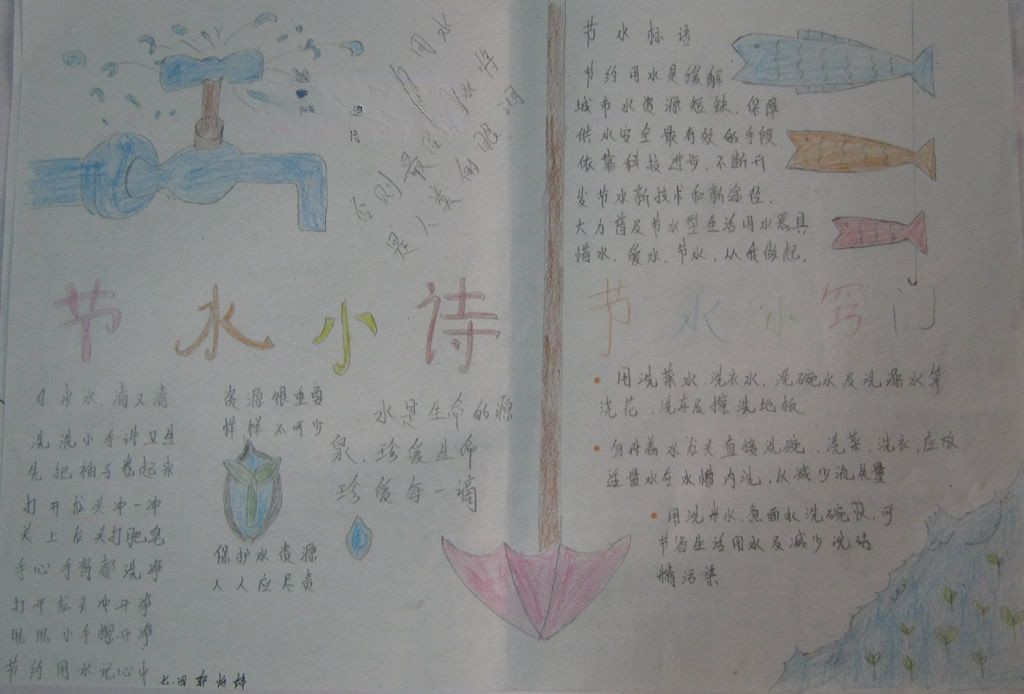 节约用水
否则最后
是人类的眼泪
节水小诗
洗洗小手讲卫生
先把袖子卷起来
打开龙头冲一冲
关上龙头打肥皂
手心手背都洗净
打开龙头冲干净
甩甩小手擦干净
节约用水记心中
资源很重要
样样不可少
保护水资源
人人应尽责
水是生命的源
泉、珍爱生命
珍爱每一滴
节水标语
节约用水是缓解
城市水资源短缺、保障
供水安全最有效的手段
依靠科技进步,不断开
发节水新技术和新途径,
大力普及节水型生活用水器具
惜水、爱水、节水,从我做起。
节水小窍门
用洗菜水、洗衣水、洗碗水及洗澡水等
浇花、洗车及擦洗地板
勿对着水龙头直接洗碗、洗菜、洗衣,应放
适量水在水槽内洗,以减少流失量
用洗米水、煮面水洗碗筷,可
节省生活用水及减少洗洁
精污染